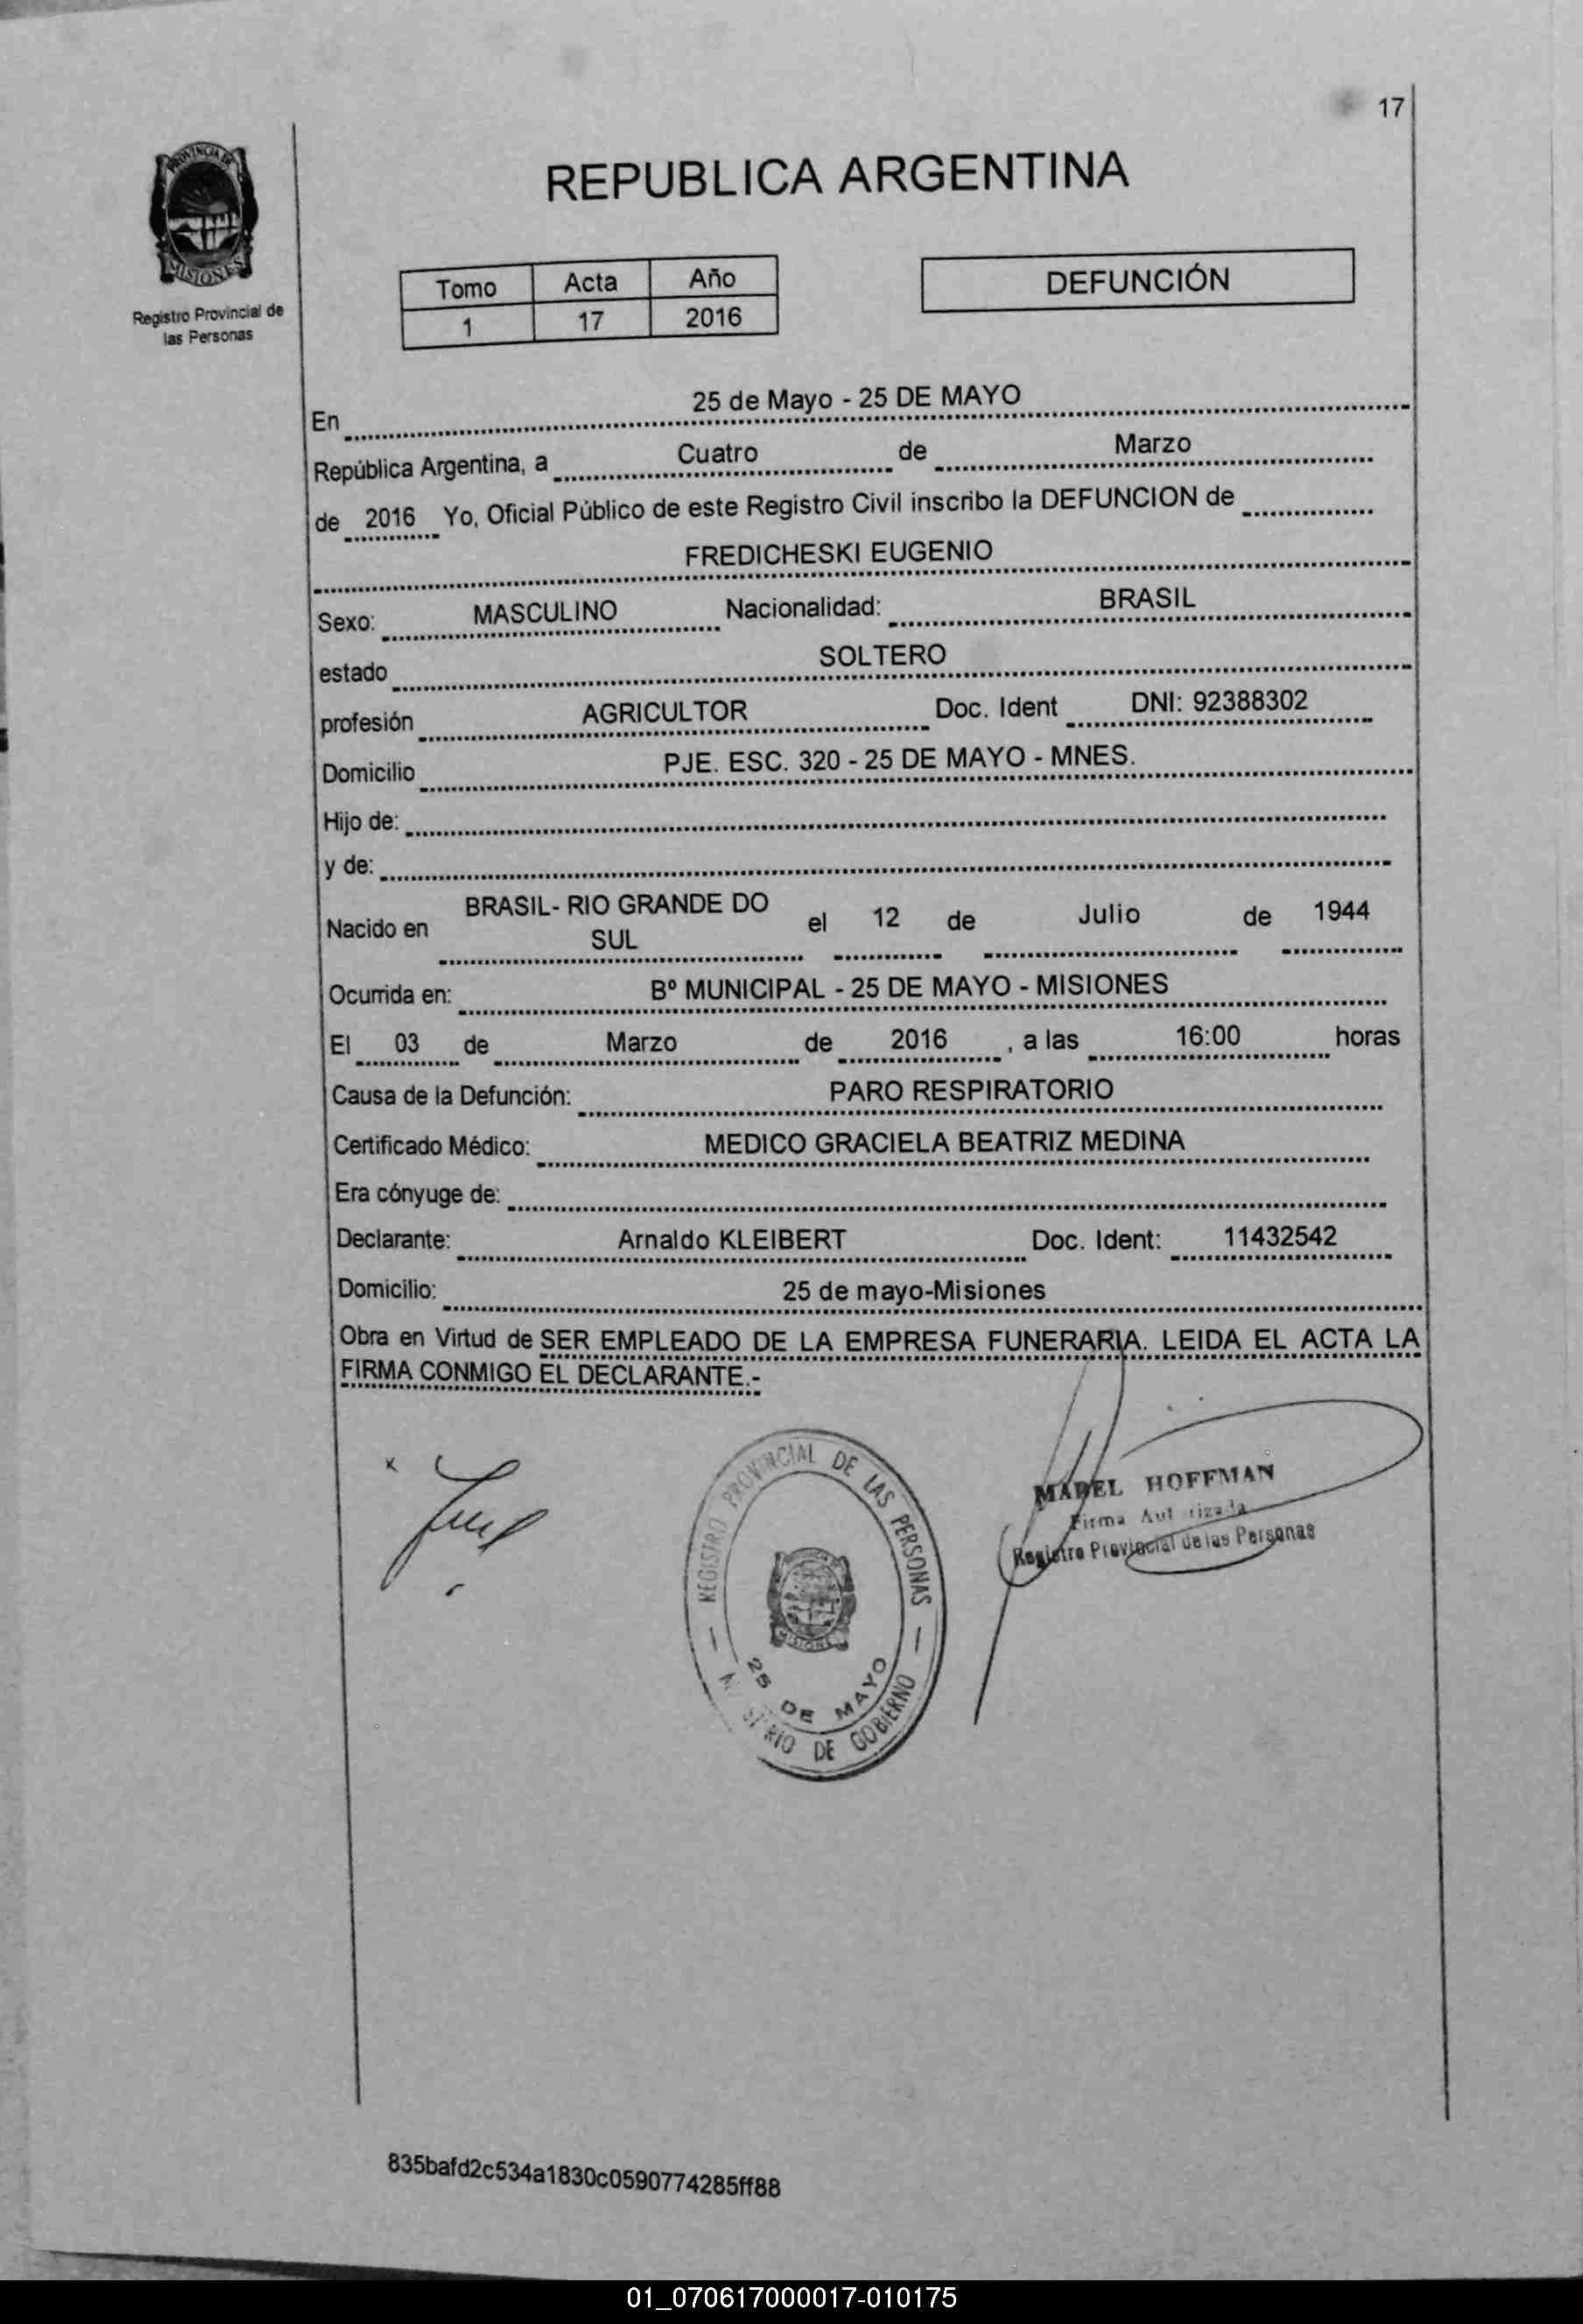 17
PROVINCIA DE
MISIONES
Registro Provincial de
las Personas
REPUBLICA ARGENTINA
Tomo Acta Año
1 17 2016
DEFUNCIÓN
En 25 de Mayo - 25 DE MAYO
República Argentina, a Cuatro de Marzo
de 2016 Yo, Oficial Público de este Registro Civil inscribo la DEFUNCION de
FREDICHESKI EUGENIO
Sexo: MASCULINO Nacionalidad: BRASIL
estado SOLTERO
profesión AGRICULTOR Doc. Ident DNI: 92388302
Domicilio PJE. ESC. 320 - 25 DE MAYO - MNES.
Hijo de:
y de:
Nacido en BRASIL- RIO GRANDE DO SUL el 12 de Julio de 1944
Ocurrida en: Bº MUNICIPAL - 25 DE MAYO - MISIONES
El 03 de Marzo de 2016 , a las 16:00 horas
Causa de la Defunción: PARO RESPIRATORIO
Certificado Médico: MEDICO GRACIELA BEATRIZ MEDINA
Era cónyuge de:
Declarante: Arnaldo KLEIBERT Doc. Ident: 11432542
Domicilio: 25 de mayo-Misiones
Obra en Virtud de SER EMPLEADO DE LA EMPRESA FUNERARIA. LEIDA EL ACTA LA
FIRMA CONMIGO EL DECLARANTE.-
REGISTRO PROVINCIAL DE LAS PERSONAS
MISIONES
25 DE MAYO
DE GOBIERNO
MABEL HOFFMAN
Firma Autorizada
Registro Provincial de las Personas
835bafd2c534a1830c0590774285ff88
01_070617000017-010175